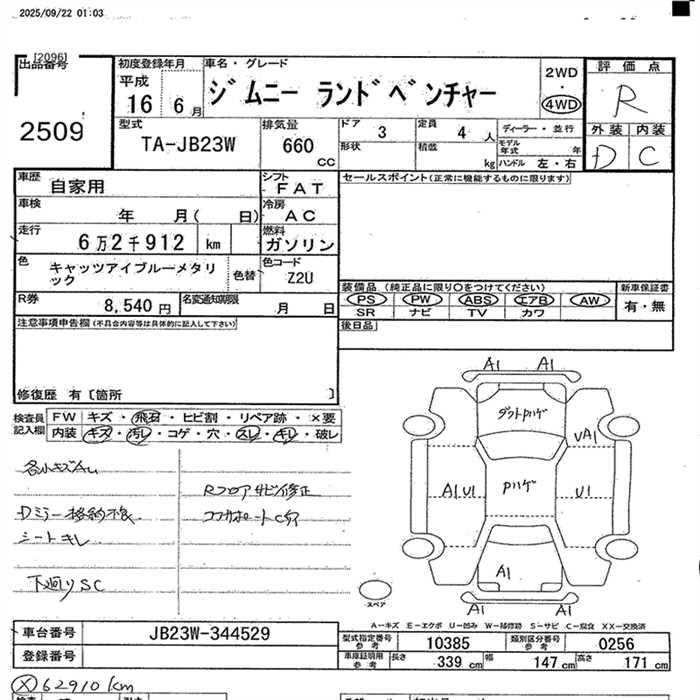 2025/09/22 01:03
[2096]
出品番号
2509
初度登録年月
平成
16 6月
車名・グレード
ジムニー ランドベンチャー
2WD
・
4WD
評価点
R
外装 内装
D C
型式
TA-JB23W
排気量
660 cc
ドア 3
形状
定員 4 人
積載 kg
ディーラー・並行
モデル年式 年
ハンドル 左・右
車歴
自家用
シフト
FAT
セールスポイント(正常に機能するものに限ります)
車検
年 月( 日)
冷房
AC
走行
6万2千912 km
燃料
ガソリン
色
キャッツアイブルーメタリ
ック
色替
色コード
Z2U
R券
8,540 円
名変通知期限
月 日
装備品 (純正品に限り○をつけてください)
PS PW ABS エアB AW
SR ナビ TV カワ
新車保証書
有・無
後日品
注意事項申告欄(不具合内容等は具体的に記入して下さい)
修復歴 有〔箇所 〕
検査員
記入欄
FW キズ・飛石・ヒビ割・リペア跡・×要
内装 キズ・汚レ・コゲ・穴・スレ・キレ・破レ
各小キズAU
Rフロアサビ修正
Dミラー格納不良
コアサポートC穴
シートキレ
下廻りSC
A1 A1
ダクトハゲ
UA1
A1U1
ハゲ
U1
A1
A1 A1
スペア
A-キズ E-エクボ U-凹み W-補修跡 S-サビ C-腐食 XX-交換済
車台番号
JB23W-344529
登録番号
型式指定番号
参考
10385
類別区分番号
参考
0256
車庫証明用
参考
長さ 339 cm 幅 147 cm 高さ 171 cm
X 62910km